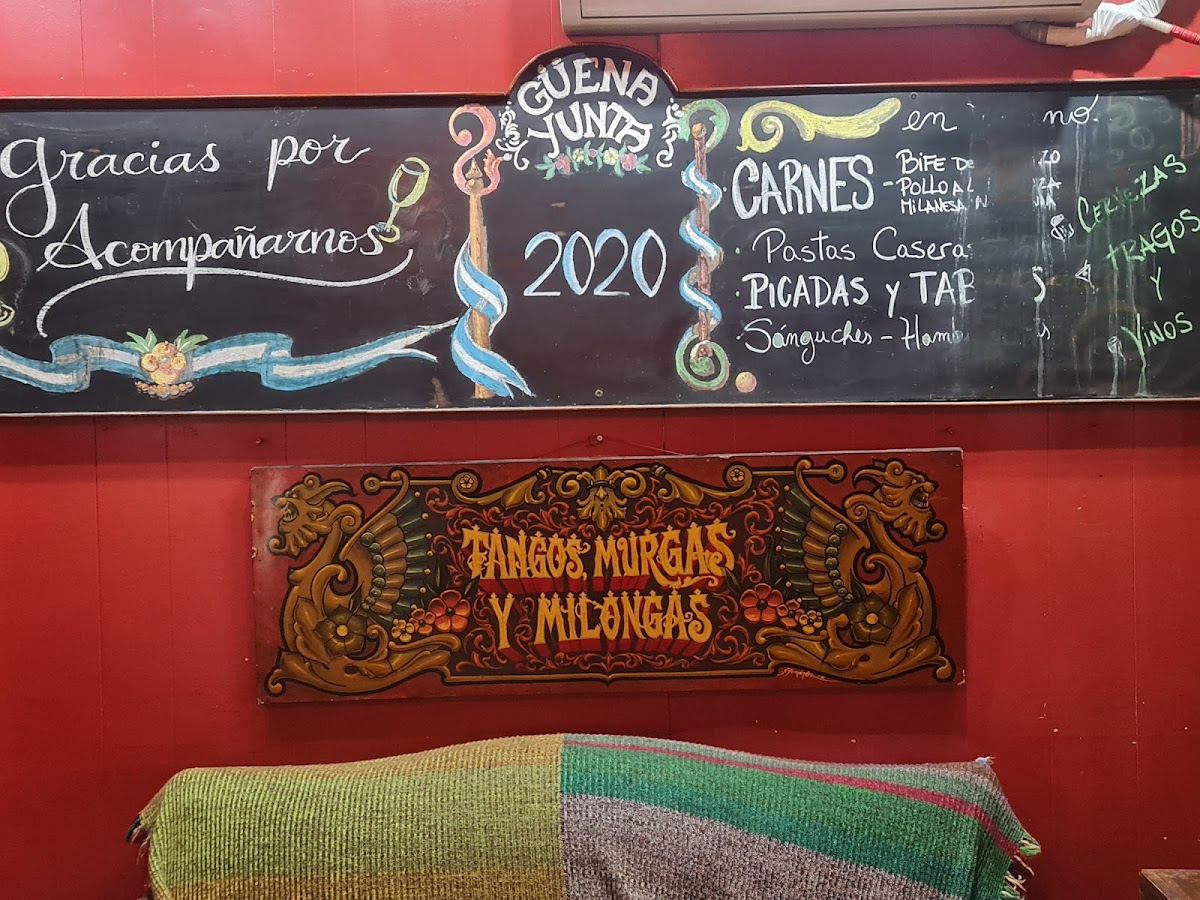 Gracias por
Acompañarnos
GÜENA
YUNTA
2020
en
CARNES - BIFE DE
POLLO AL
MILANESA
· Pastas Caseras
· PICADAS Y
· Sánguches -
CERVEZAS
TRAGOS
Y
VINOS
TANGOS, MURGAS
Y MILONGAS